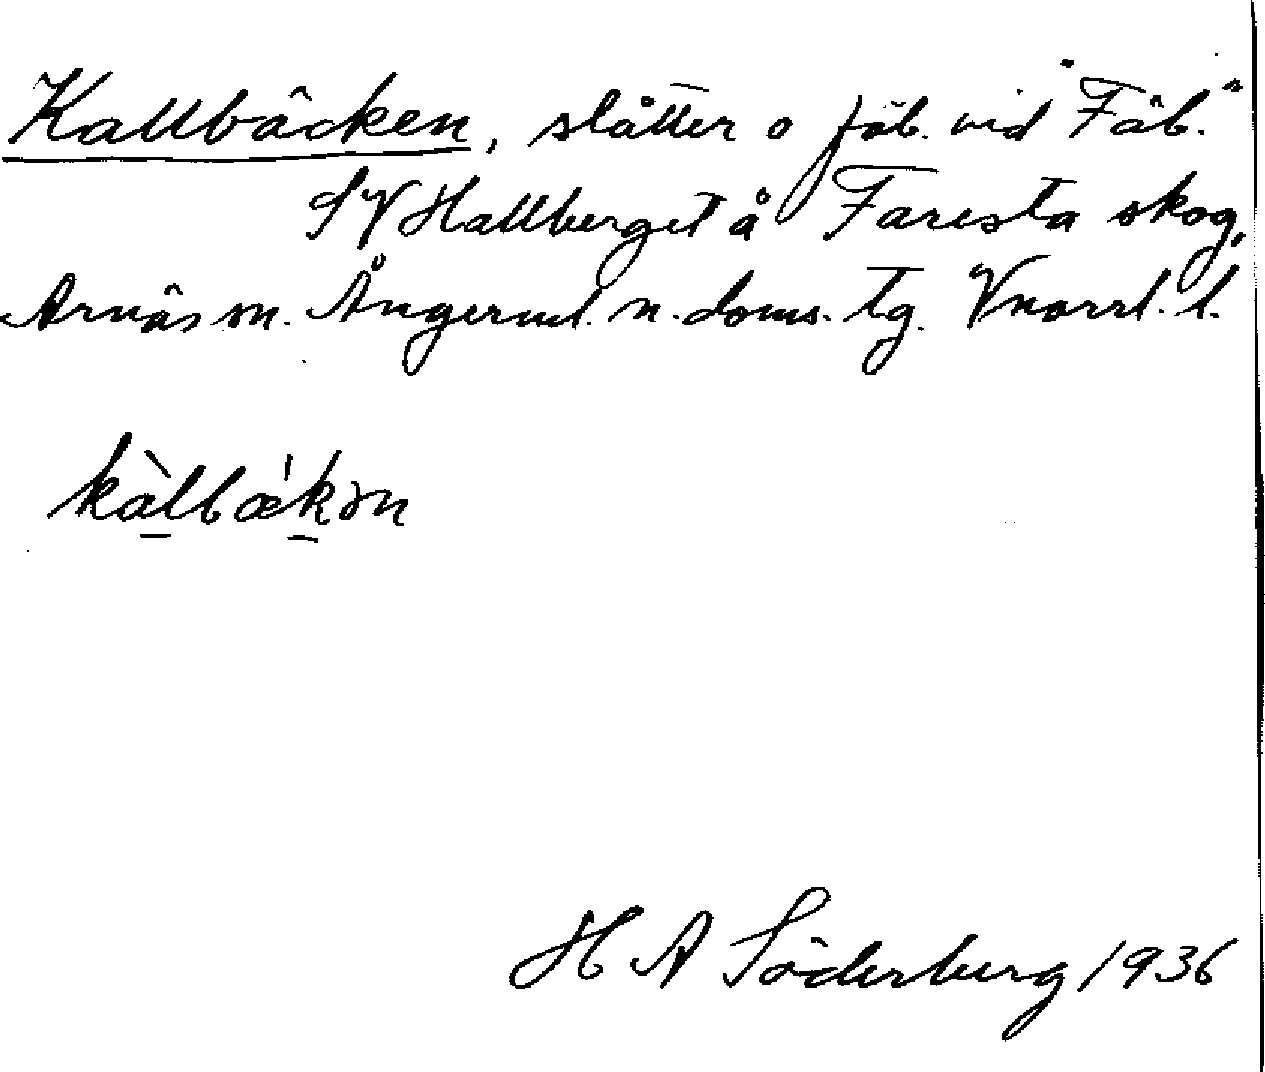 Kallbäcken, slåtter o fäb. vid "Fäb."
SV Hallberget å Faresta skog,
Arnäs sn. Ångerml. n. doms. tg. Vnorrl. l.
kàlbæ'kən
H A Söderberg 1936